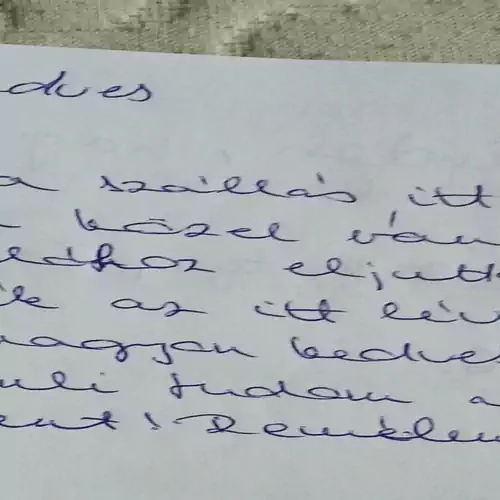 dves
a szállás itt
közel van
edhez eljutt
ik az itt lév
nagyon kedves
uli tudom a
ent! Remélem